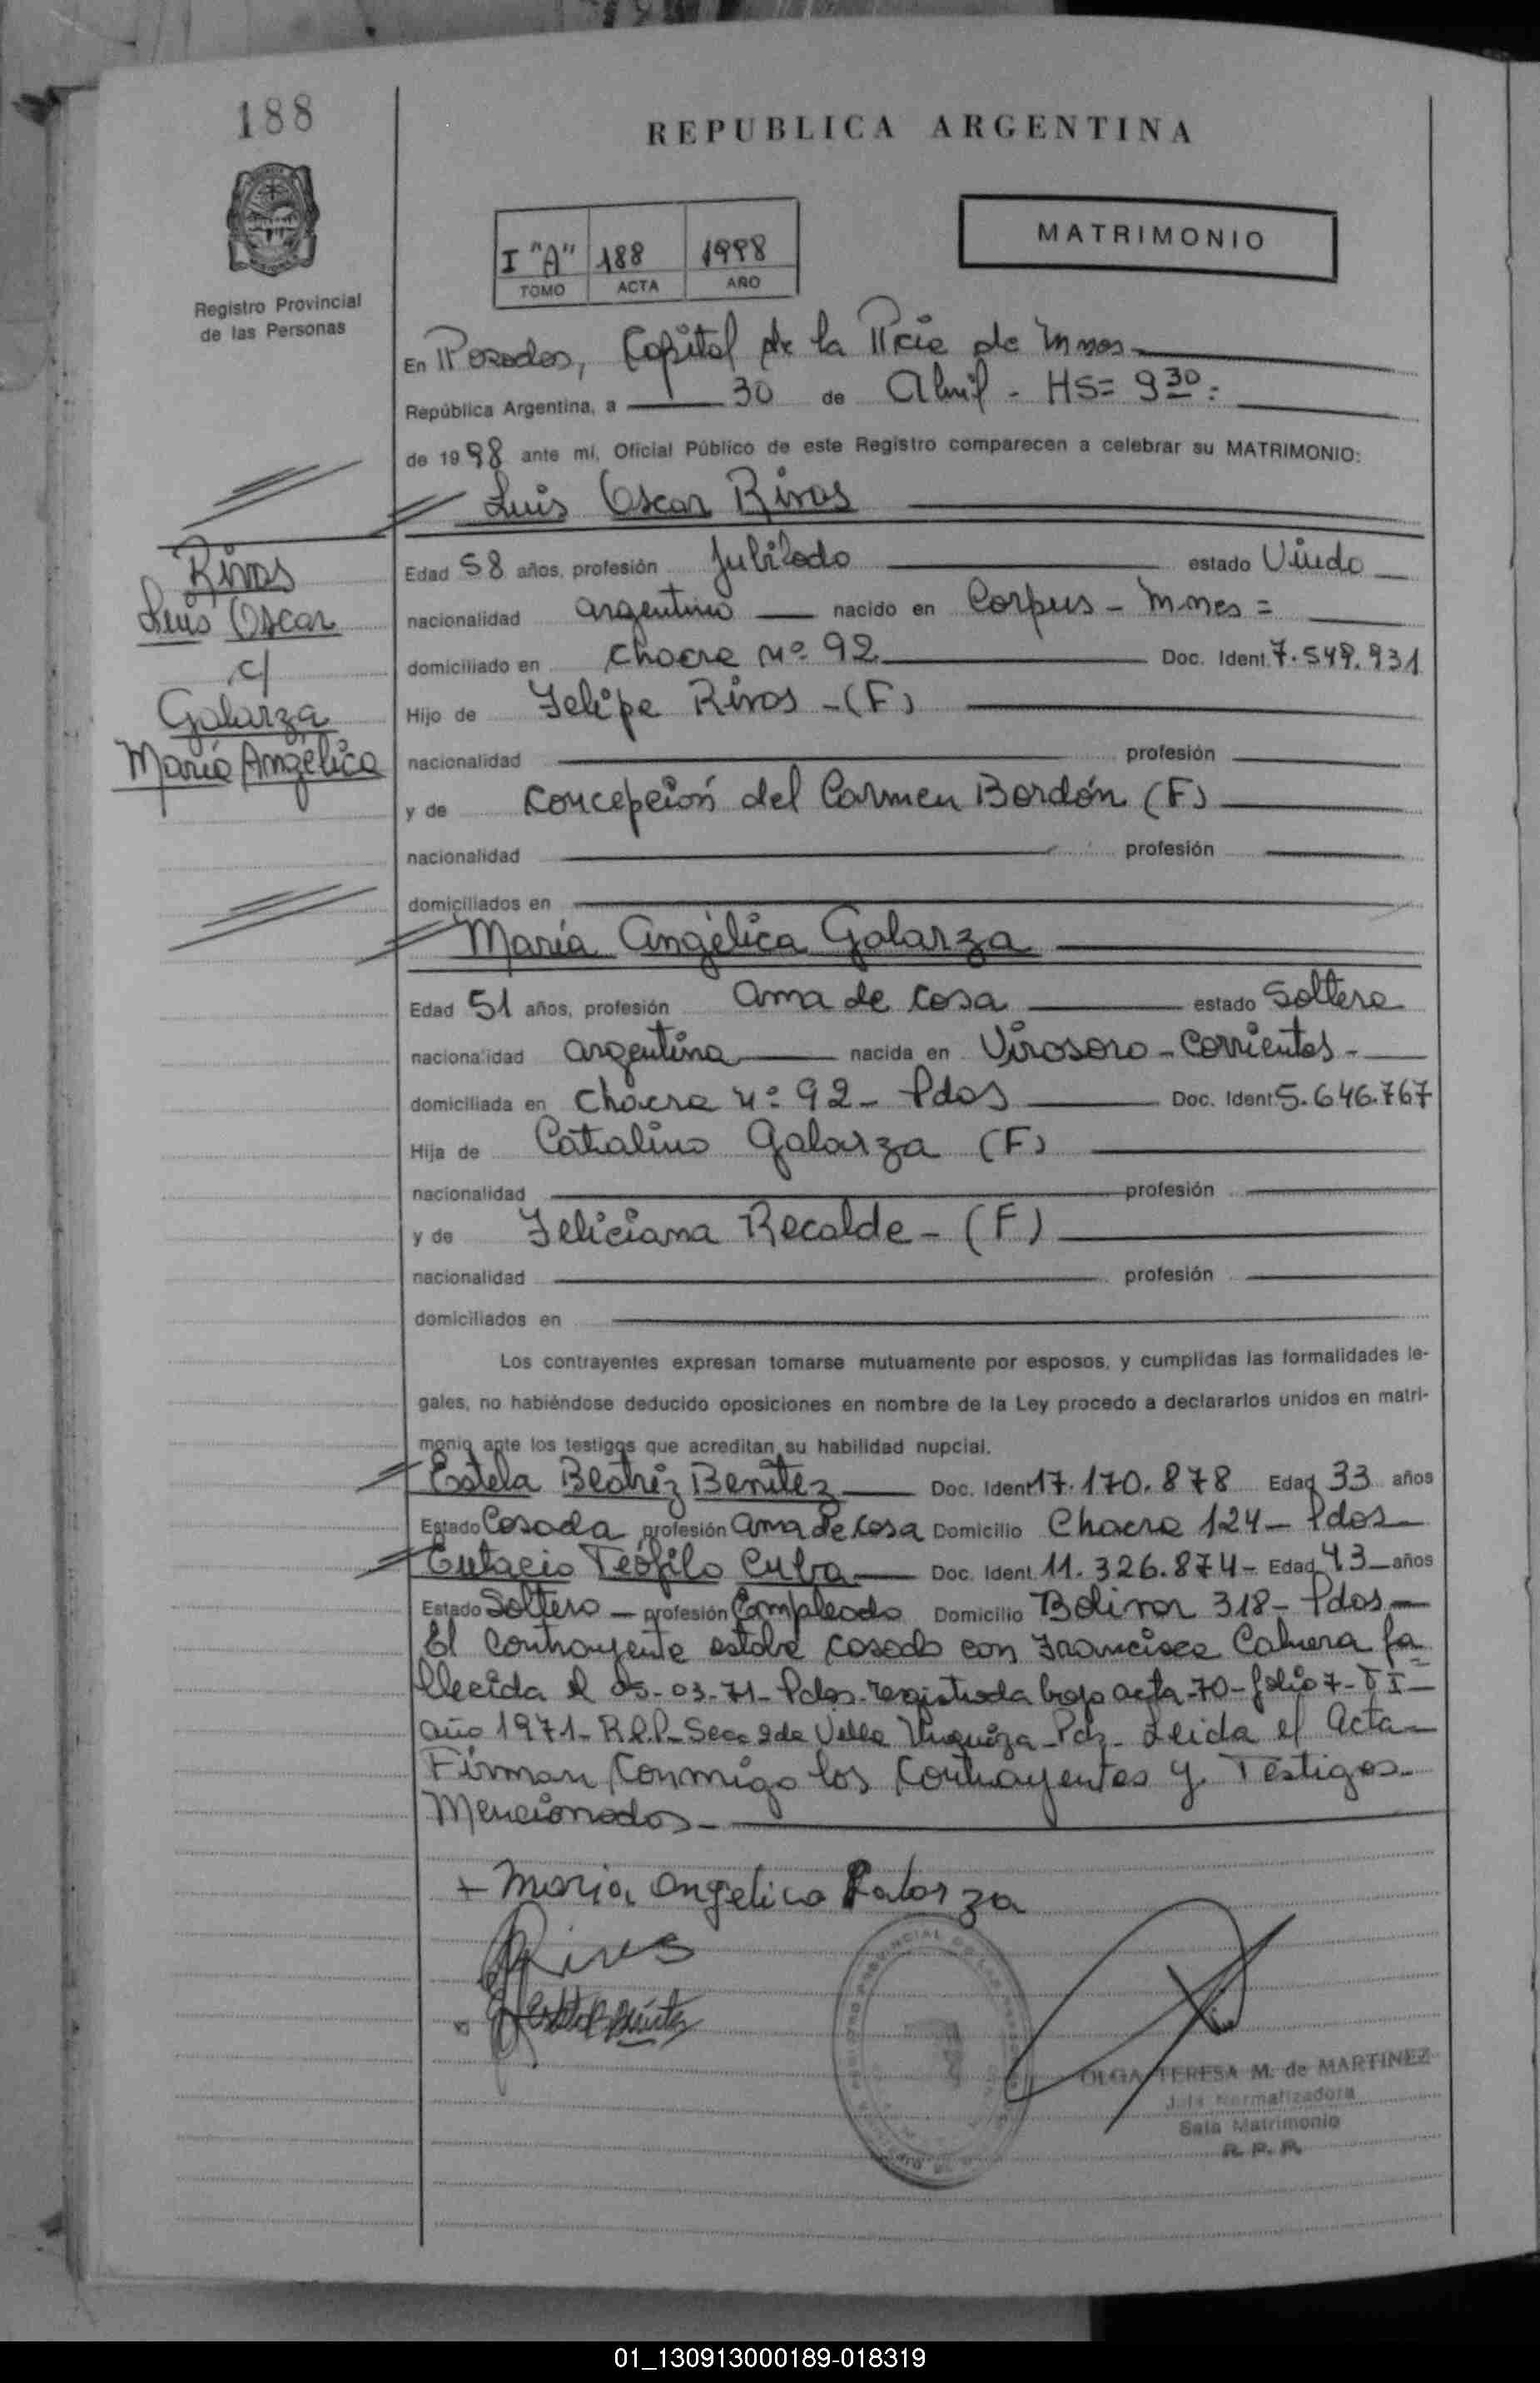 188
REPUBLICA ARGENTINA
MATRIMONIO
I "A" 188 1998
TOMO ACTA AÑO
Registro Provincial
de las Personas
En Posadas, Capital de la Pcia de Mnes
República Argentina, a 30 de Abril - HS= 9 30 =
de 1998 ante mí, Oficial Público de este Registro comparecen a celebrar su MATRIMONIO:
Luis Oscar Rivas
Rivas
Luis Oscar
c/
Galarza
María Angélica
Edad 58 años, profesión Jubilado estado Viudo
nacionalidad argentino nacido en Corpus - Mnes =
domiciliado en Chacra Nº 92 Doc. Ident. 7.549.931
Hijo de Felipe Rivas - (F)
nacionalidad profesión
y de Concepción del Carmen Bordón (F)
nacionalidad profesión
domiciliados en
María Angélica Galarza
Edad 51 años, profesión Ama de Casa estado Soltera
nacionalidad argentina nacida en Virosoro - Corrientes -
domiciliada en Chacra Nº 92 - Pdas Doc. Ident 5.646.767
Hija de Catalino Galarza (F)
nacionalidad profesión
y de Feliciana Recalde - (F)
nacionalidad profesión
domiciliados en
Los contrayentes expresan tomarse mutuamente por esposos, y cumplidas las formalidades le-
gales, no habiéndose deducido oposiciones en nombre de la Ley procedo a declararlos unidos en matri-
monio ante los testigos que acreditan su habilidad nupcial.
Estela Beatriz Benítez Doc. Ident 17.170.878 Edad 33 años
Estado Casada profesión Ama de Casa Domicilio Chacra 124 - Pdas
Eutacio Teófilo Doc. Ident. 11.326.874 - Edad 43 años
Estado Soltero - profesión Empleado Domicilio Bolivar 318 - Pdas
El Contrayente estaba casado con Francisca Cabrera fa
llecida el 05-03-71 - Pdas. registrada bajo acta-70-folio 7-T I
año 1971 - R.P.P - Secc 2da Villa Urquiza - Pdas - Leida el Acta
Firman Conmigo los Contrayentes y Testigos
Mencionados -
+ Maria angelica Galarza
Rivas
OLGA TERESA M. de MARTINEZ
Jefa Normatizadora
Sala Matrimonio
R. P. P.
01_130913000189-018319